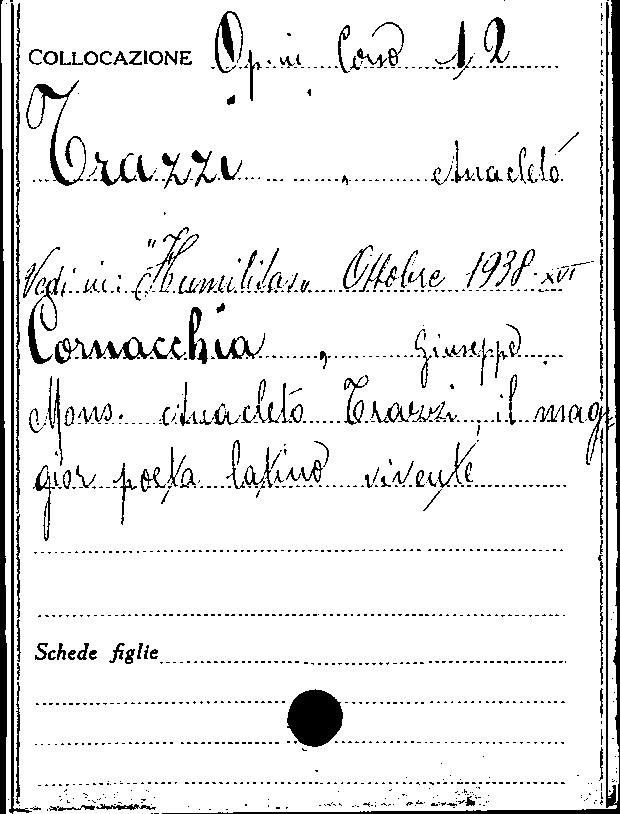 COLLOCAZIONE Op. in Corso 12
Trazzi, Anacleto
Vedi in: "Humilitas" Ottobre 1938-XVI
Cornacchia, Giuseppe.
Mons. Anacleto Trazzi, il mag-
gior poeta latino vivente
Schede figlie